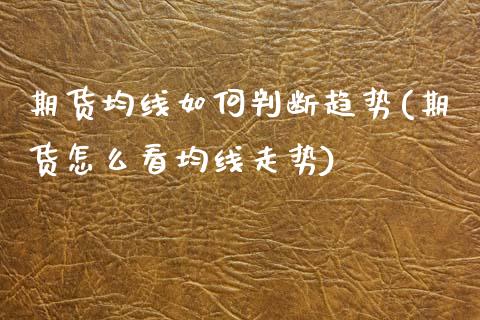 期货均线如何判断趋势(期
货怎么看均线走势)